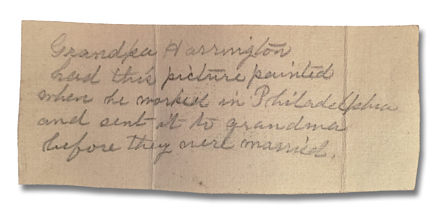 Grandpa Harrington
had this picture painted
when he worked in Philadelphia
and sent it to grandma
before they were married.